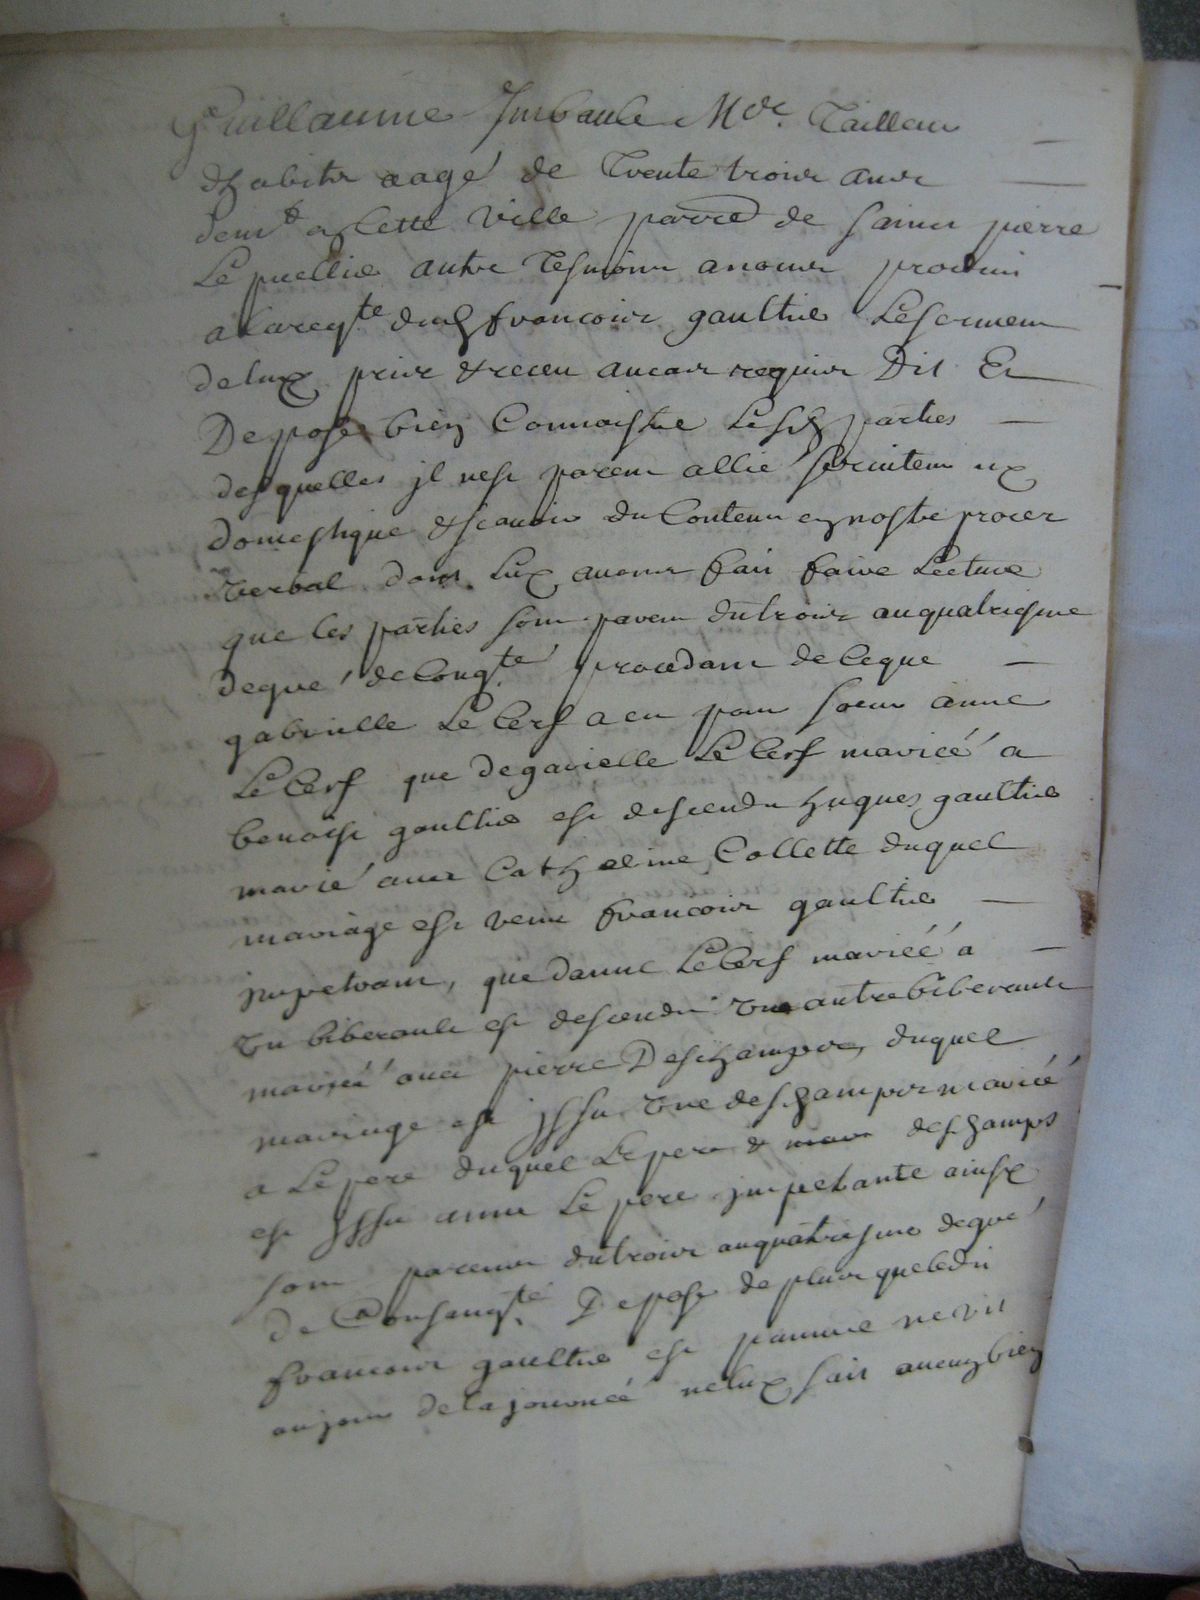 Guillaume Imbault M.de Tailleur
dhabits aagé de Trente trois ans
dem.t a Cette Ville parr.e de Sainct pierre
Le puellier autre Tesmoin a nous produit
a la req.te dud francois gaultier Le serment
de luy pris & receu au cas requis Dit Et
Depose bien Connoistre Lesd parties
desquelles jl nest parent allie seruiteur ny
domestique & scauoir du Contenu en nostre procez
Verbal dont luy auons fait faire Lecture
que les parties sont parent du trois au quatriesme
degré de Cong.té procedant de ce que
gabrielle Le Cerf a eu pour soeur anne
Le Cerf que de gabrielle Le Cerf mariéé a
benoist gaultier est descendu hugues gaultier
marié auec Catherine Collette duquel
mariage est venu francois gaultier
jmpetrant, que danne Le Cerf mariéé a
Vn biberault est descendu Vne autre biberault
mariéé auec pierre Deschamps, duquel
mariage est jssu Vne deschamps mariéé
a Le pere duquel Le pere & deschamps
est jssu anne Le pere jmpetrante ainsy
sont parents du trois au quatriesme degré
de Consang.té Depose de plus que ledit
francois gaultier est pauure ne vit
au jour de la journéé ne luy sait aucuns bien